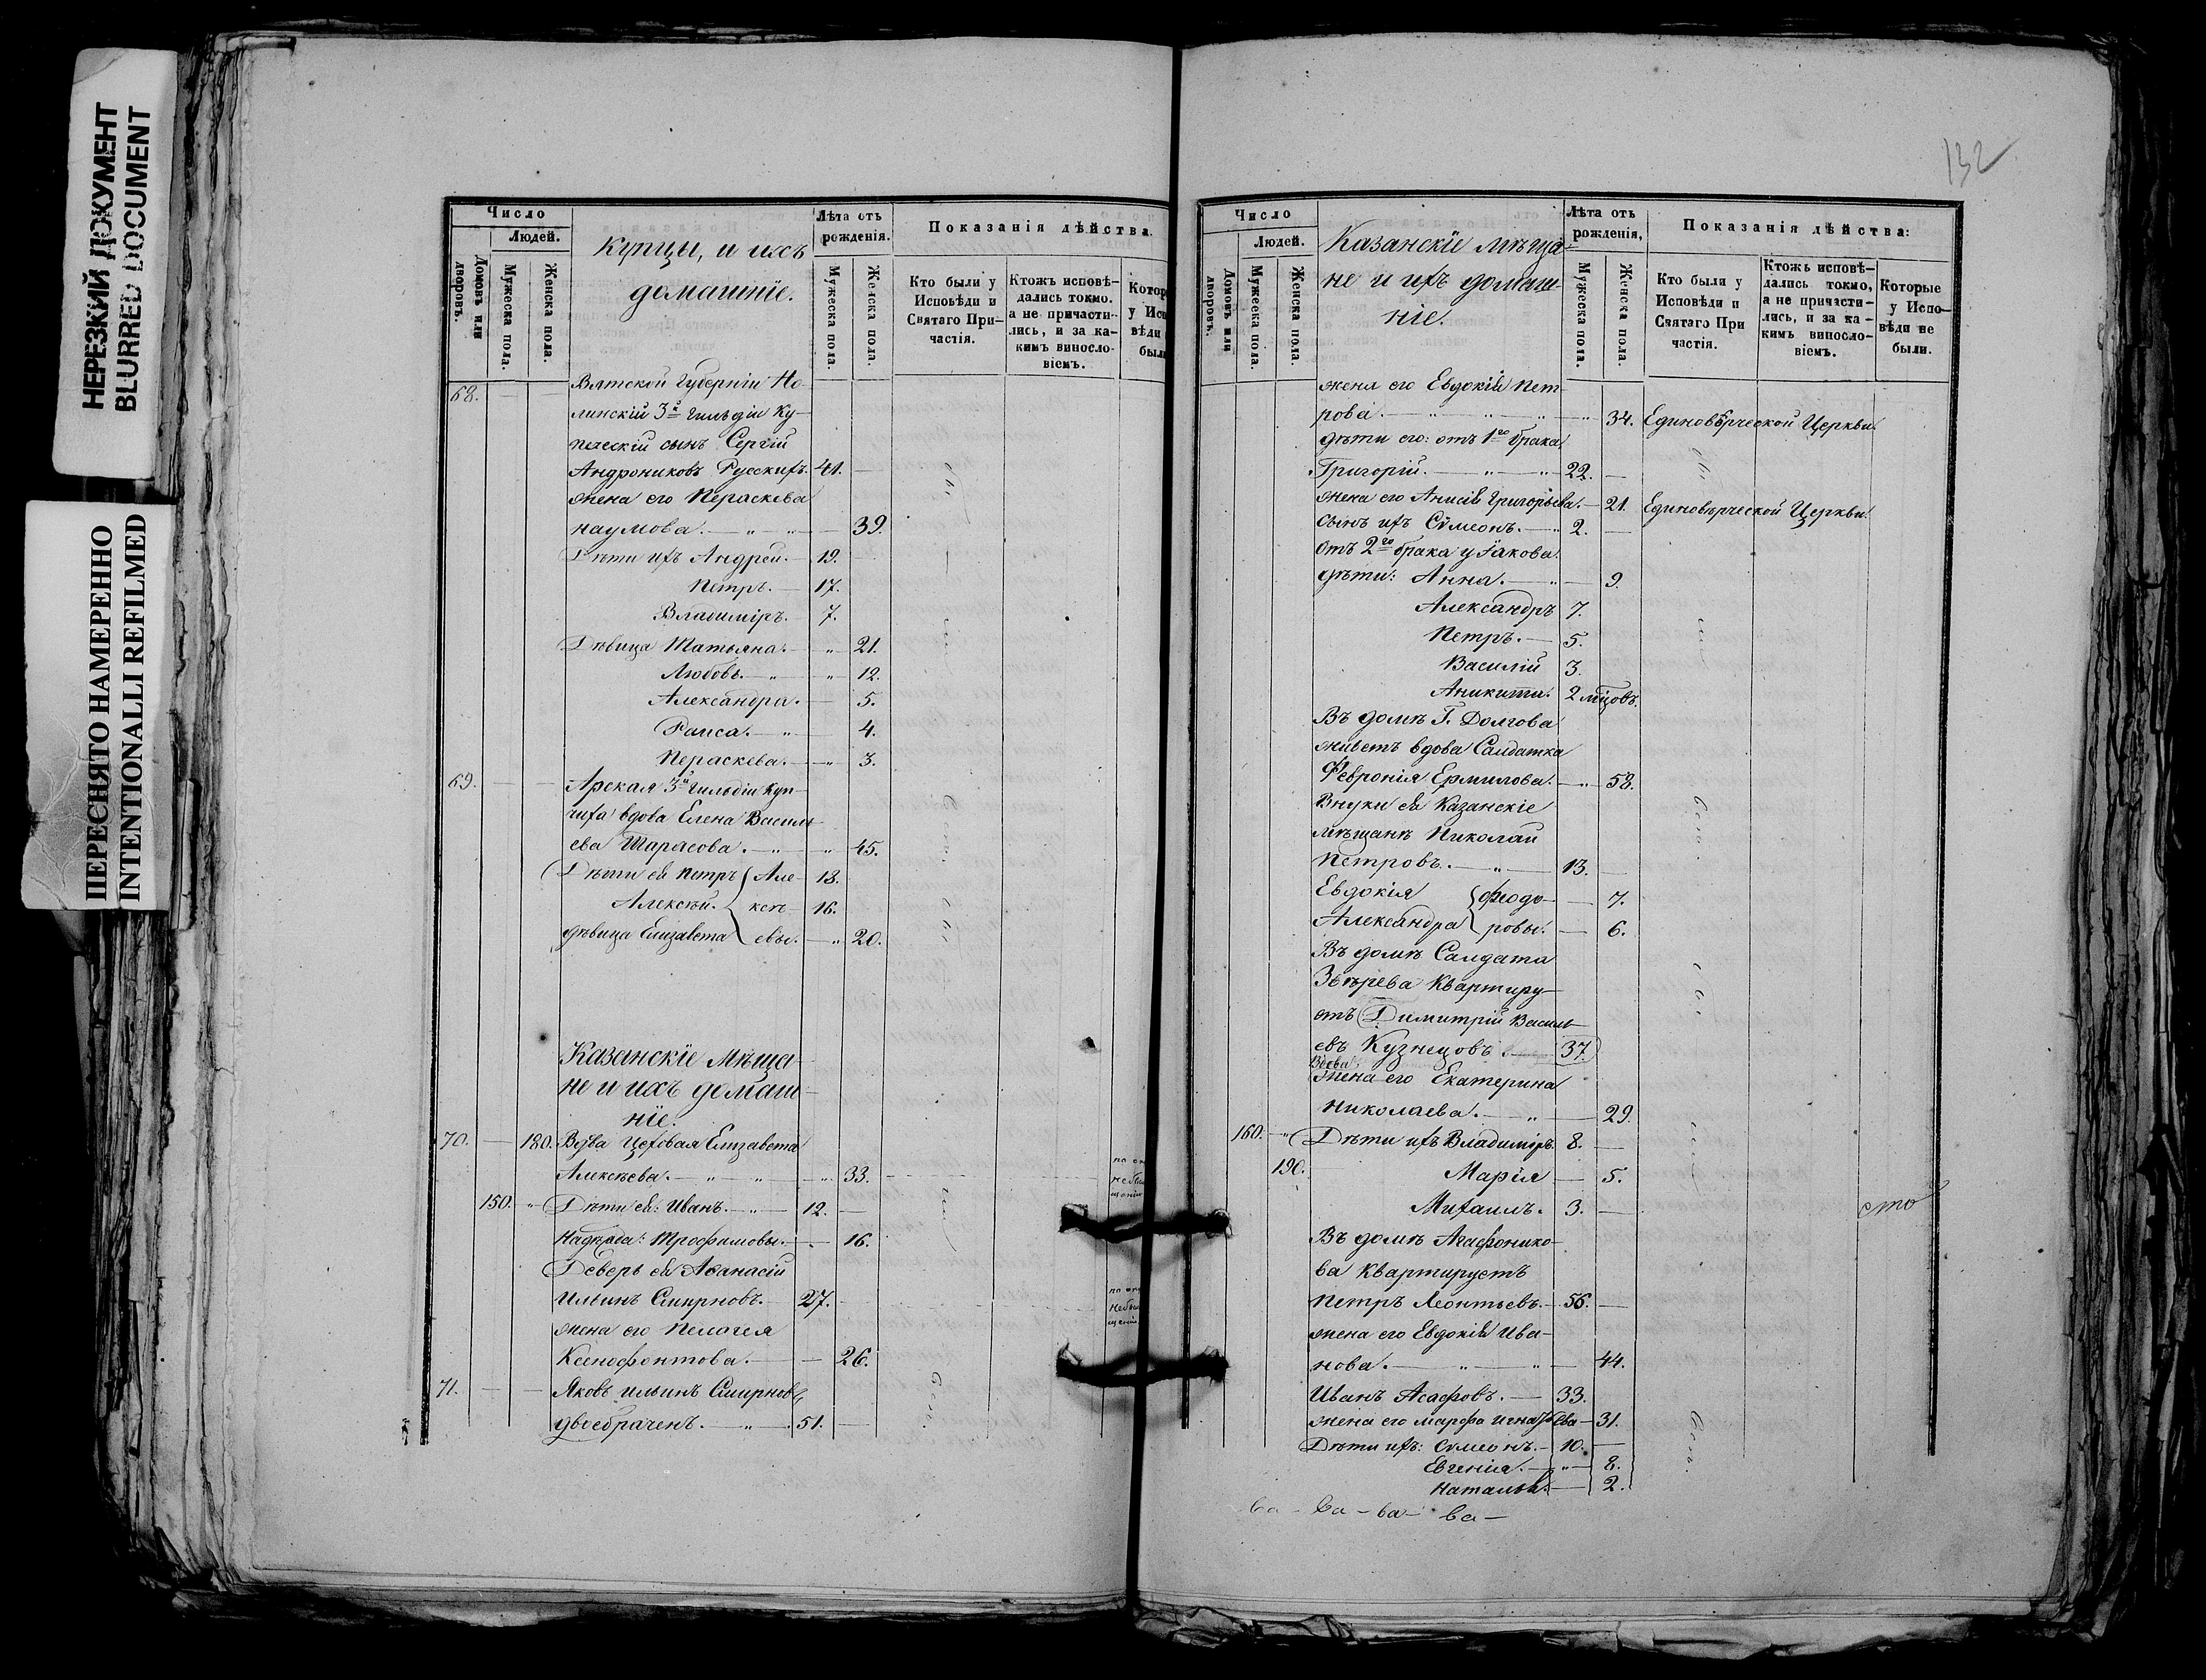 НЕРЕЗКИЙ ДОКУМЕНТ
BLURRED DOCUMENT
ПЕРЕСНЯТО НАМЕРЕННО
INTENTIONALLI REFILMED
Число
Людей.
Домовъ или дворовъ.
Мужеска пола.
Женска пола.
Купцы, и ихъ
домашніе.
Лѣта отъ
рожденія.
Мужеска пола.
Женска пола.
Показанія дѣйства.
Кто были у
Исповѣди и
Святаго При-
частія.
Ктожъ исповѣ-
дались токмо.
а не причасти-
лись, и за ка-
кимъ винносло-
віемъ.
Котор
у Исп
вѣди
были
68. Вятской Губерніи Но-
линскій 3й гильдіи Ку-
печескій сынъ Сергій
Андрониковъ Русскихъ. 41.
жена его Пераскева
Наумова. 39.
Дѣти ихъ Андрей. 19.
Петръ. 17.
Владиміръ. 7.
Дѣвица Татьяна. 21.
Любовь. 12.
Александра. 5.
Раиса. 4.
Пераскева. 3.
69. Арская 3й гильдіи Куп-
чиха вдова Елена Василь-
ева Тарасова. 45.
Дѣти ея Петръ Але- 18.
Алексѣй. ксѣ- 16.
дѣвица Елизавета евы. 20.
Казанскіе Мѣща-
не и ихъ домаш-
ніе.
70. 180. Вдова Цеховая Елизавета
Алексѣева. 33.
150. Дѣти ея: Иванъ. 12.
Надежда: Трофимовы. 16.
Деверь ея Аѳанасій
Ильинъ Смирновъ. 27.
жена его Пелагея
Ксенофонтова. 26.
71. Яковъ Ильинъ Смирновъ,
двоебраченъ. 51.
132
Число
Людей.
Домовъ или дворовъ.
Мужеска пола.
Женска пола.
Казанскіе мѣща-
не и ихъ домаш-
ніе.
Лѣта отъ
рожденія,
Мужеска пола.
Женска пола.
Показанія дѣйства:
Кто были у
Исповѣди и
Святаго При
частія.
Ктожъ исповѣ-
дались токмо,
а не причасти-
лись, и за ка-
кимъ виносло-
віемъ.
Которые
у Испо-
вѣди не
были.
жена его Евдокія Пет-
рова. 34. Единовѣрческой Церкви.
дѣти его: отъ 1го брака,
Григорій. 22.
жена его Анисія Григорьева. 21. Единовѣрческой Церкви.
сынъ ихъ Сѵмеонъ. 2.
отъ 2го брака у Іакова.
дѣти: Анна. 9.
Александръ 7.
Петръ. 5.
Василій 3.
Аникита. 2 мѣцовъ.
Въ домѣ Г. Долгова
живетъ вдова Салдатка
Февронія Ермилова. 58.
Внуки ея Казанскіе
мѣщане Николай
Петровъ. 13.
Евдокія Феодо- 7.
Александра ровы. 6.
Въ домѣ Салдата
Звѣрева Квартиру-
етъ Димитрій Василь-
евъ Кузнецовъ. 37.
Вдова
жена его Екатерина
Николаева. 29.
160. Дѣти ихъ Владиміръ. 8.
190. Марія 5.
Михаилъ. 3.
сто
Въ домѣ Агафонико-
ва Квартируетъ
Петръ Леонтьевъ. 56.
жена его Евдокія Ива-
нова. 44.
Иванъ Асафовъ. 33.
жена его Марфа Игнатьева 31.
Дѣти ихъ: Сѵмеонъ. 10.
Евгенія. 8.
Наталья. 2.
ва - ва - ва - ва -